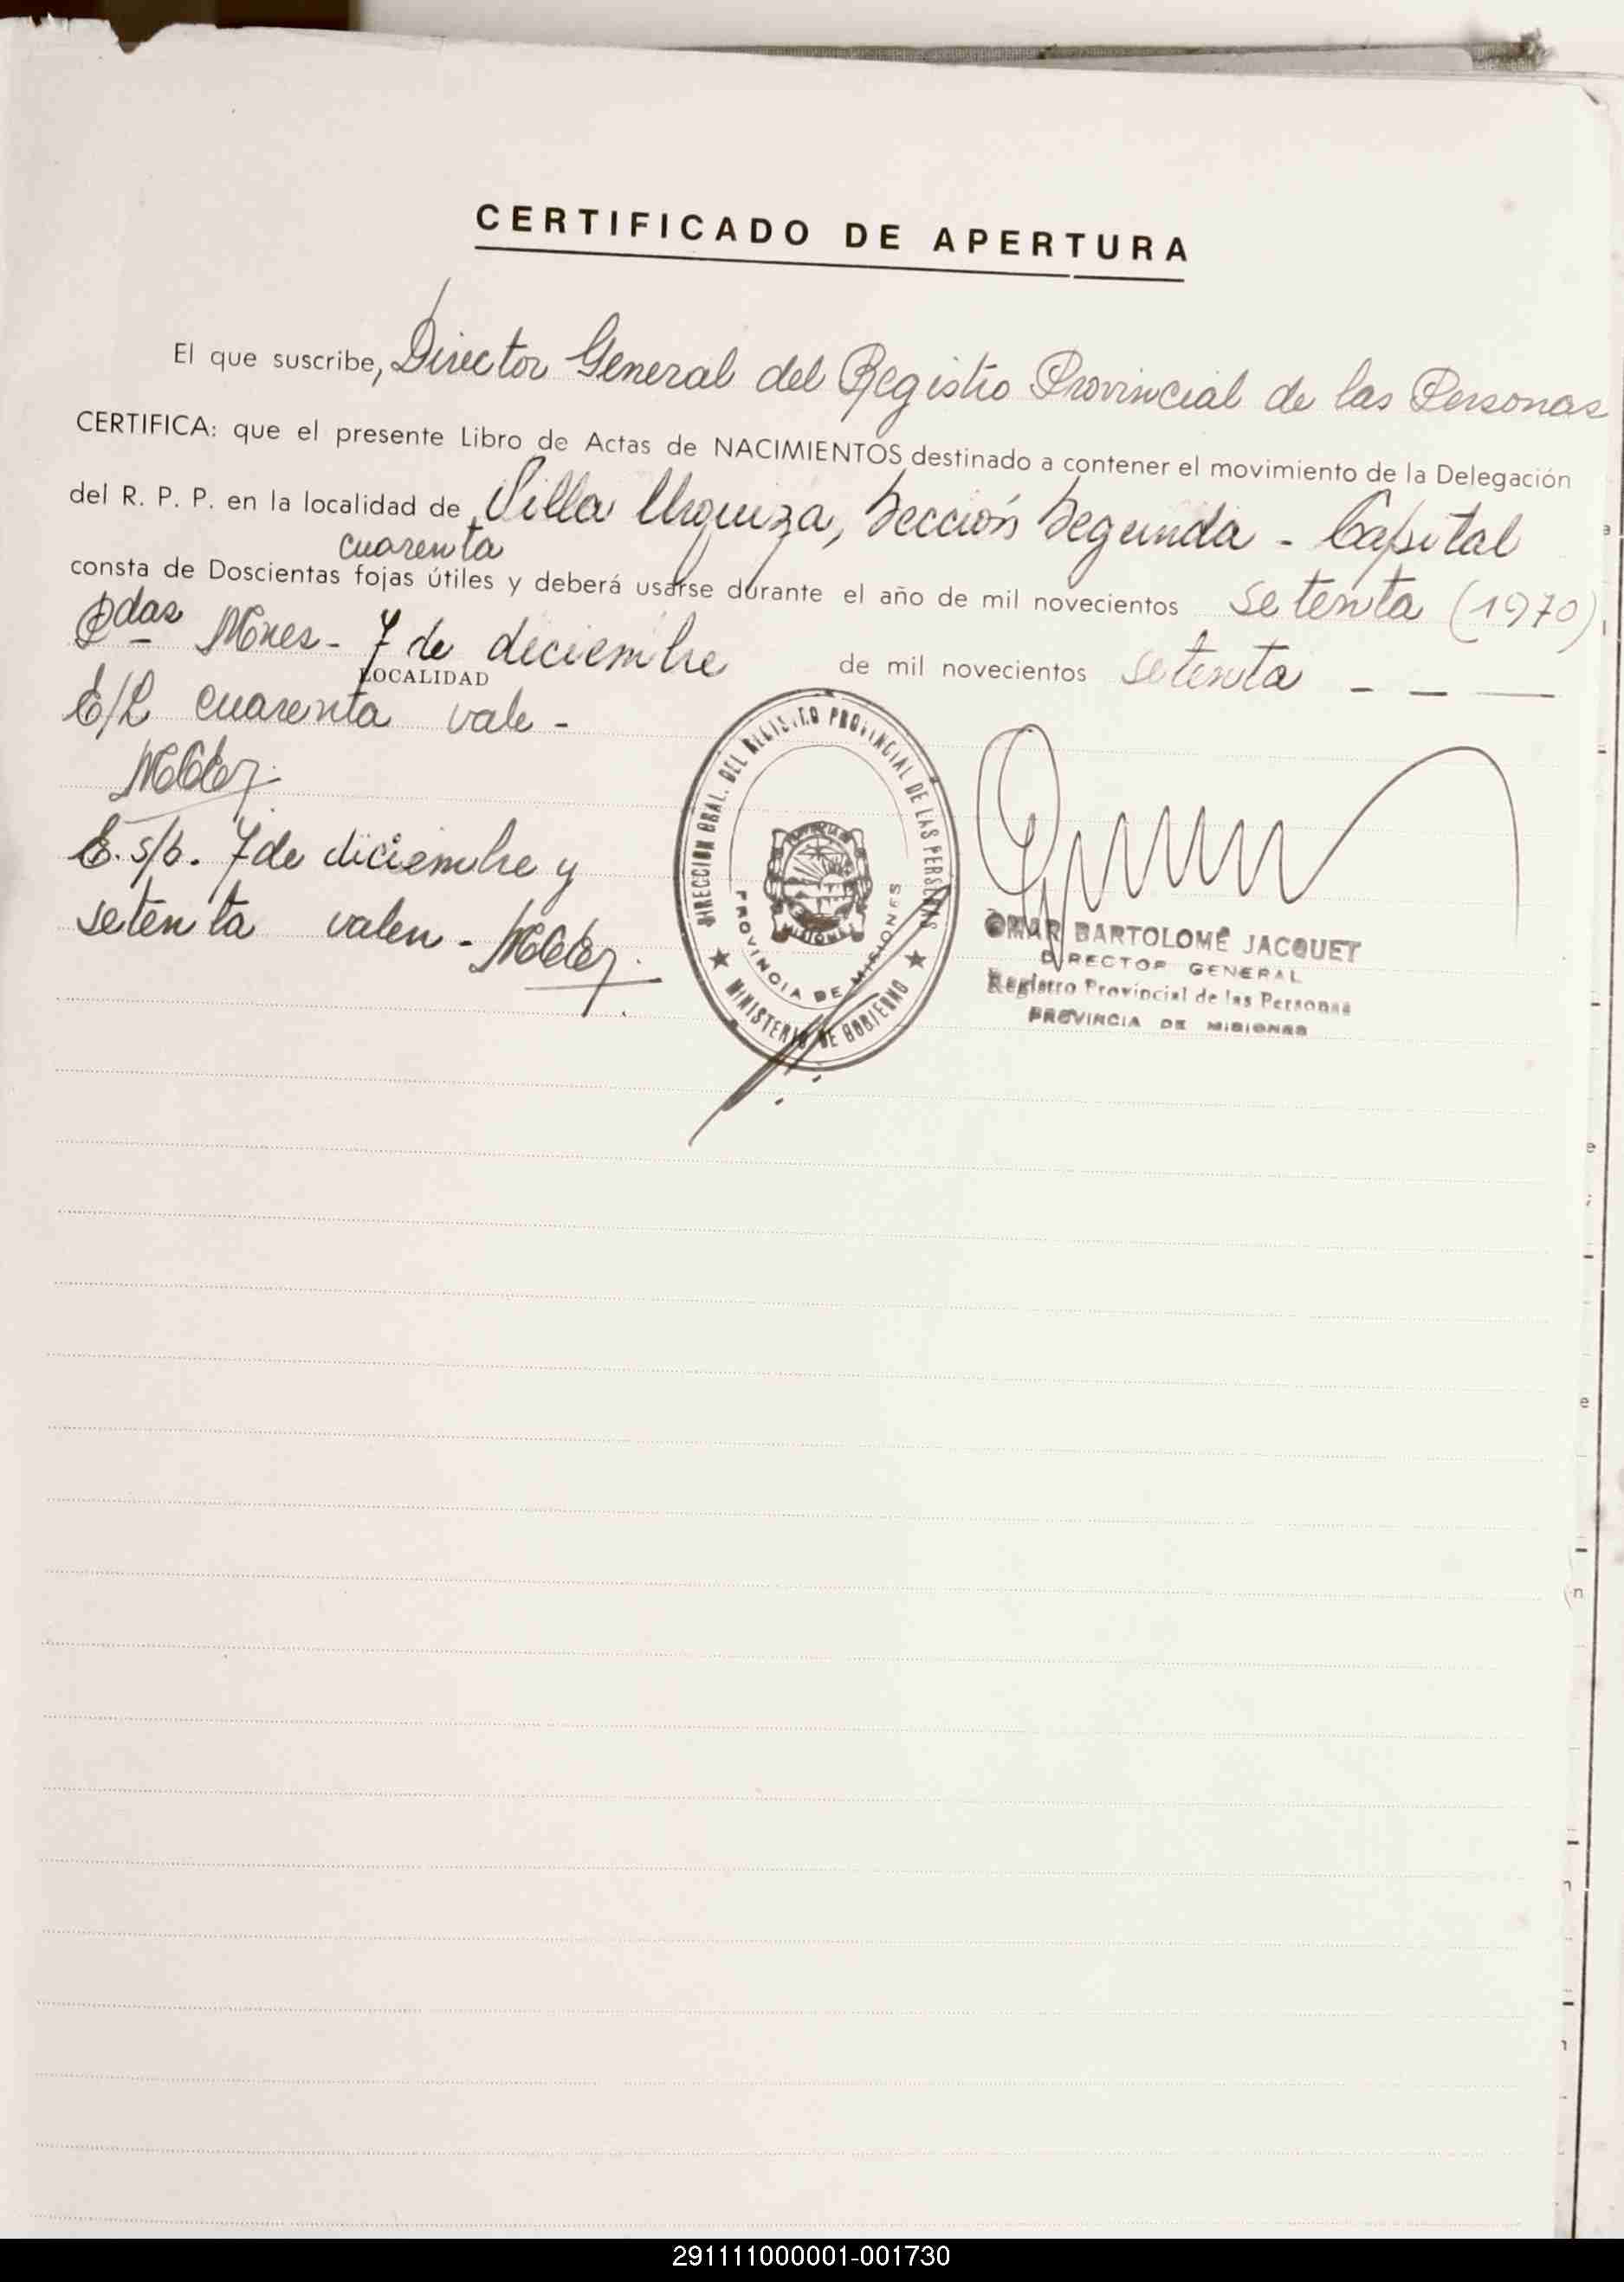 CERTIFICADO DE APERTURA
El que suscribe, Director General del Registro Provincial de las Personas
CERTIFICA: que el presente Libro de Actas de NACIMIENTOS destinado a contener el movimiento de la Delegación
del R. P. P. en la localidad de Villa Urquiza, Sección Segunda - Capital
cuarenta
consta de Doscientas fojas útiles y deberá usarse durante el año de mil novecientos setenta (1970)
Pdas Mnes - 7 de diciembre de mil novecientos setenta - - —
LOCALIDAD
E/L cuarenta vale -
E. s/b. 7 de diciembre y
setenta valen -
DIRECCION GRAL. DEL REGISTRO PROVINCIAL DE LAS PERSONAS
PROVINCIA DE MISIONES
MISIONES
MINISTERIO DE GOBIERNO
OMAR BARTOLOMÉ JACQUET
DIRECTOR GENERAL
Registro Provincial de las Personas
PROVINCIA DE MISIONES
291111000001-001730